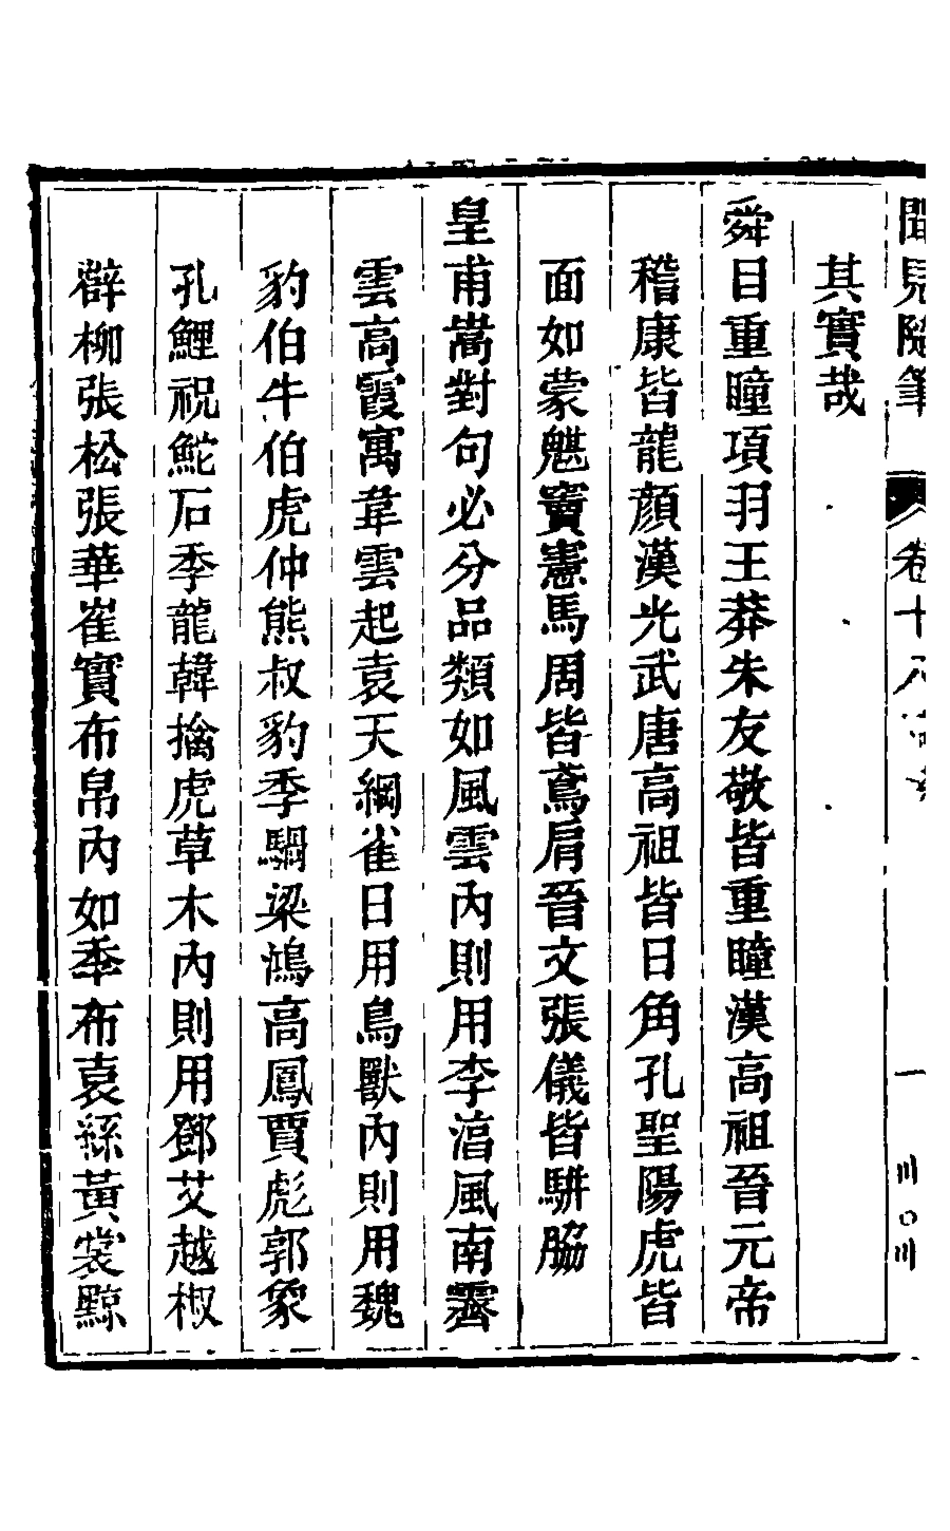 聞見隨筆 卷十八 一
其實哉
舜目重瞳項羽王莽朱友敬皆重瞳漢高祖晉元帝
稽康皆龍顏漢光武唐高祖皆日角孔聖陽虎皆
面如蒙魌竇憲馬周皆鳶肩晉文張儀皆駢脇
皇甫嵩對句必分品類如風雲內則用李滔風南霽
雲高霞寓韋雲起袁天綱雀日用鳥獸內則用魏
豹伯牛伯虎仲熊叔豹季騧梁鴻高鳳賈彪郭象
孔鯉祝鮀石季龍韓擒虎草木內則用鄧艾越椒
薜柳張松張華崔實布帛內如季布袁絲黃裳黥